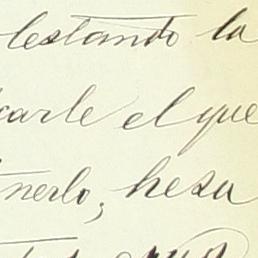 lestando la
carle el que
nerlo; hesa